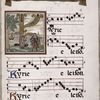 Kyrie
e leison.
Kyrie e leison.
Kyrie e leison.